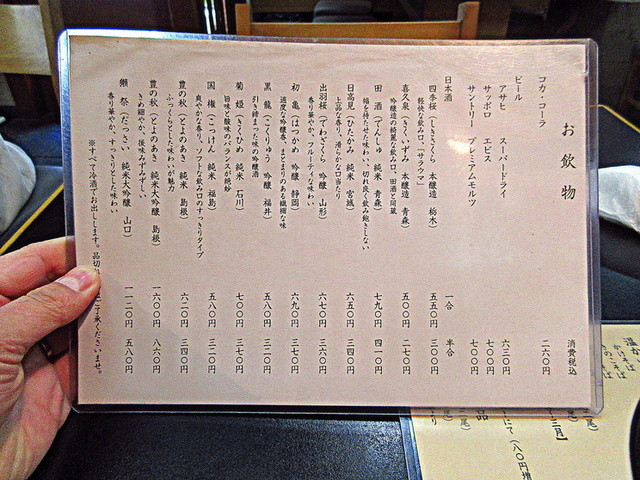 お飲物
消費税込
コカ・コーラ 二六〇円
ビール
アサヒ スーパードライ 六三〇円
サッポロ エビス 七〇〇円
サントリー プレミアムモルツ 七〇〇円
日本酒 一合 半合
四季桜(しきざくら 本醸造 栃木) 五五〇円 三〇〇円
軽快な飲み口、「サラウマ」
喜久泉(きくいずみ 本醸造 青森) 五〇〇円 二七〇円
吟醸造の綺麗な飲み口、田酒と同蔵
田酒(でんしゅ 純米 青森) 七九〇円 四一〇円
幅を持たせた味わい、切れ良く飲み飽きしない
日高見(ひたかみ 純米 宮城) 六五〇円 三四〇円
上品な香り、滑らかな口当たり
出羽桜(でわざくら 吟醸 山形) 六七〇円 三六〇円
香り華やか、フルーティな味わい
初亀(はつかめ 吟醸 静岡) 六九〇円 三七〇円
適度な吟醸香、まとまりのある繊細な味
黒龍(こくりゅう 吟醸 福井) 五八〇円 三二〇円
引き締まった味の吟醸酒
菊姫(きくひめ 純米 石川) 七〇〇円 三七〇円
旨味と酸味のバランスが絶妙
国権(こっけん 純米 福島) 五八〇円 三二〇円
爽やかな香り、ソフトな飲み口のすっきりタイプ
豊の秋(とよのあき 純米 島根) 六二〇円 三四〇円
ふっくらとした味わいが魅力
豊の秋(とよのあき 純米大吟醸 島根) 一六〇〇円 八六〇円
きめ細やか、後味みずみずしい
獺祭(だっさい 純米大吟醸 山口) 一一二〇円 五八〇円
香り華やか、すっきりとした味わい
※すべて冷酒でお出しします。品切 ご了承くださいませ。
温か
かけそば
三月】
にて(八〇円増